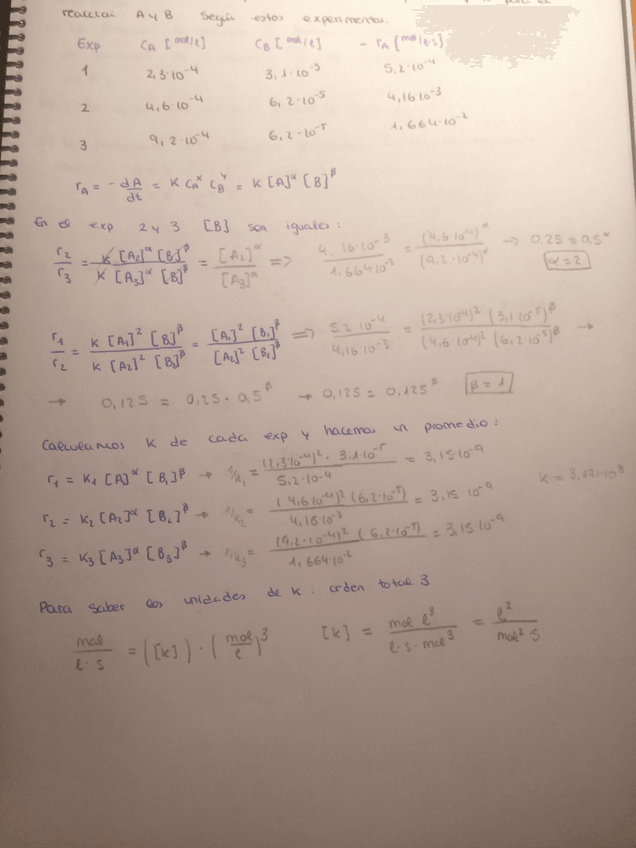 reacción A y B según estos experimentos.
Exp CA [mol/l] CB [mol/l] - rA [mol/l·s]
1 2,3·10⁻⁴ 3,1·10⁻⁵ 5,2·10⁻⁴
2 4,6·10⁻⁴ 6,2·10⁻⁵ 4,16·10⁻³
3 9,2·10⁻⁴ 6,2·10⁻⁵ 1,664·10⁻²
rA = - dA/dt = K CA^x CB^y = K [A]^α [B]^β
En el exp 2 y 3 [B] son iguales:
r2/r3 = K [A2]^α [B]^β / K [A3]^α [B]^β = [A2]^α / [A3]^α => 4,16·10⁻³ / 1,664·10⁻² = (4,6·10⁻⁴)^α / (9,2·10⁻⁴)^α → 0,25 = 0,5^α
α = 2
r1/r2 = K [A1]² [B]^β / K [A2]² [B2]^β = [A1]² [B1]^β / [A2]² [B2]^β => 5,2·10⁻⁴ / 4,16·10⁻³ = (2,3·10⁻⁴)² (3,1·10⁻⁵)^β / (4,6·10⁻⁴)² (6,2·10⁻⁵)^β →
→ 0,125 = 0,25 · 0,5^β → 0,125 = 0,125^β β = 1
Calculamos K de cada exp y hacemos un promedio:
r1 = K1 [A]^α [B1]^β → 1/k1 = (2,3·10⁻⁴)² · 3,1·10⁻⁵ / 5,2·10⁻⁴ = 3,15·10⁻⁹
r2 = K2 [A2]^α [B2]^β → 1/k2 = (4,6·10⁻⁴)² (6,2·10⁻⁵) / 4,16·10⁻³ = 3,15·10⁻⁹
r3 = K3 [A3]^α [B3]^β → 1/k3 = (9,2·10⁻⁴)² (6,2·10⁻⁵) / 1,664·10⁻² = 3,15·10⁻⁹
Para saber las unidades de K: orden total 3
mol / l·s = ([k]) · (mol/l)³ [k] = mol l³ / l·s·mol³ = l² / mol² s